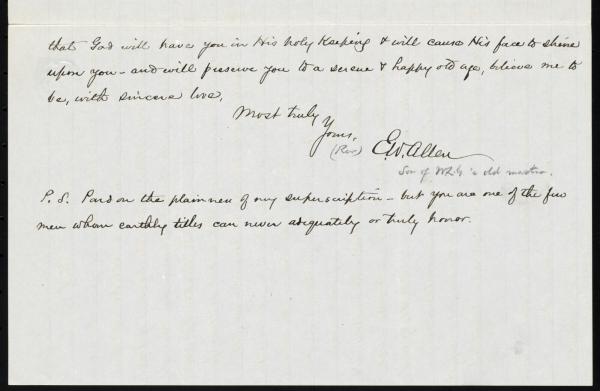 that God will have you in His holy Keeping & will cause His face to shine
upon you - and will preserve you to a serene & happy old age, believe me to
be, with sincere love,
Most truly
Yours,
(Rev) E. W. Allen
Son of Whi's old master.
P. S. Pardon the plainness of my superscription - but you are one of the few
men whom earthly titles can never adequately or truly honor.